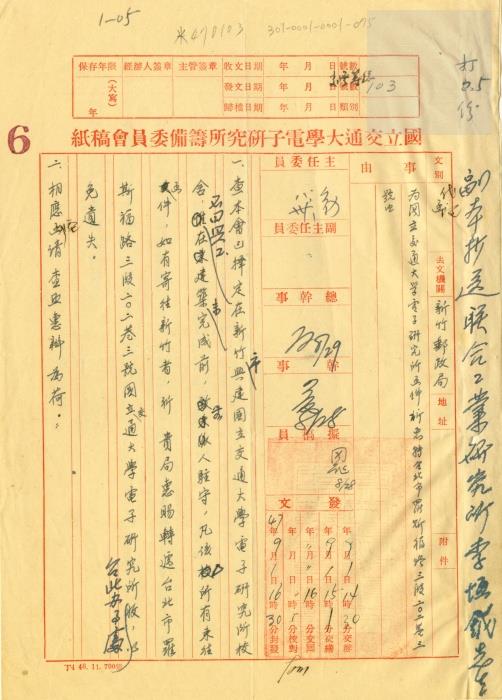 1-05
米470103
301-0001-0001-075
打
副本抄送聯合工業研究所李恒鉞先生
保存年限
(大寫)
年
經辦人簽章
主管簽章
收文日期 年 月 日
發文日期 年 月 日
歸檔日期 年 月 日
號數
類別
103
6
國立交通大學電子研究所籌備委員會稿紙
文別
代電
去文機關
新竹郵政局
地址
附件
事由
為國立交通大學電子研究所函件祈惠轉台北市羅斯福路三段二〇二巷三號由
主任委員
副主任委員
總幹事
29
幹事
8/28
擬稿員
8/28
發文
47年9月1日14時20分交辦
年9月1日15時分交繕
年月日16時分校對
9月1日16時30分封發
一、查本會已擇定在新竹市興建國立交通大學電子研究所校
舍,在建築完成前,人駐守,凡該所所有來往
文件,如有寄往新竹者,祈 貴局惠賜轉遞台北市羅
斯福路三段二〇二巷三號國立交通大學電子研究所收,以
免遺失。
台北辦事處
二、相應函請 查照惠辦為荷。
T4 46.11.700